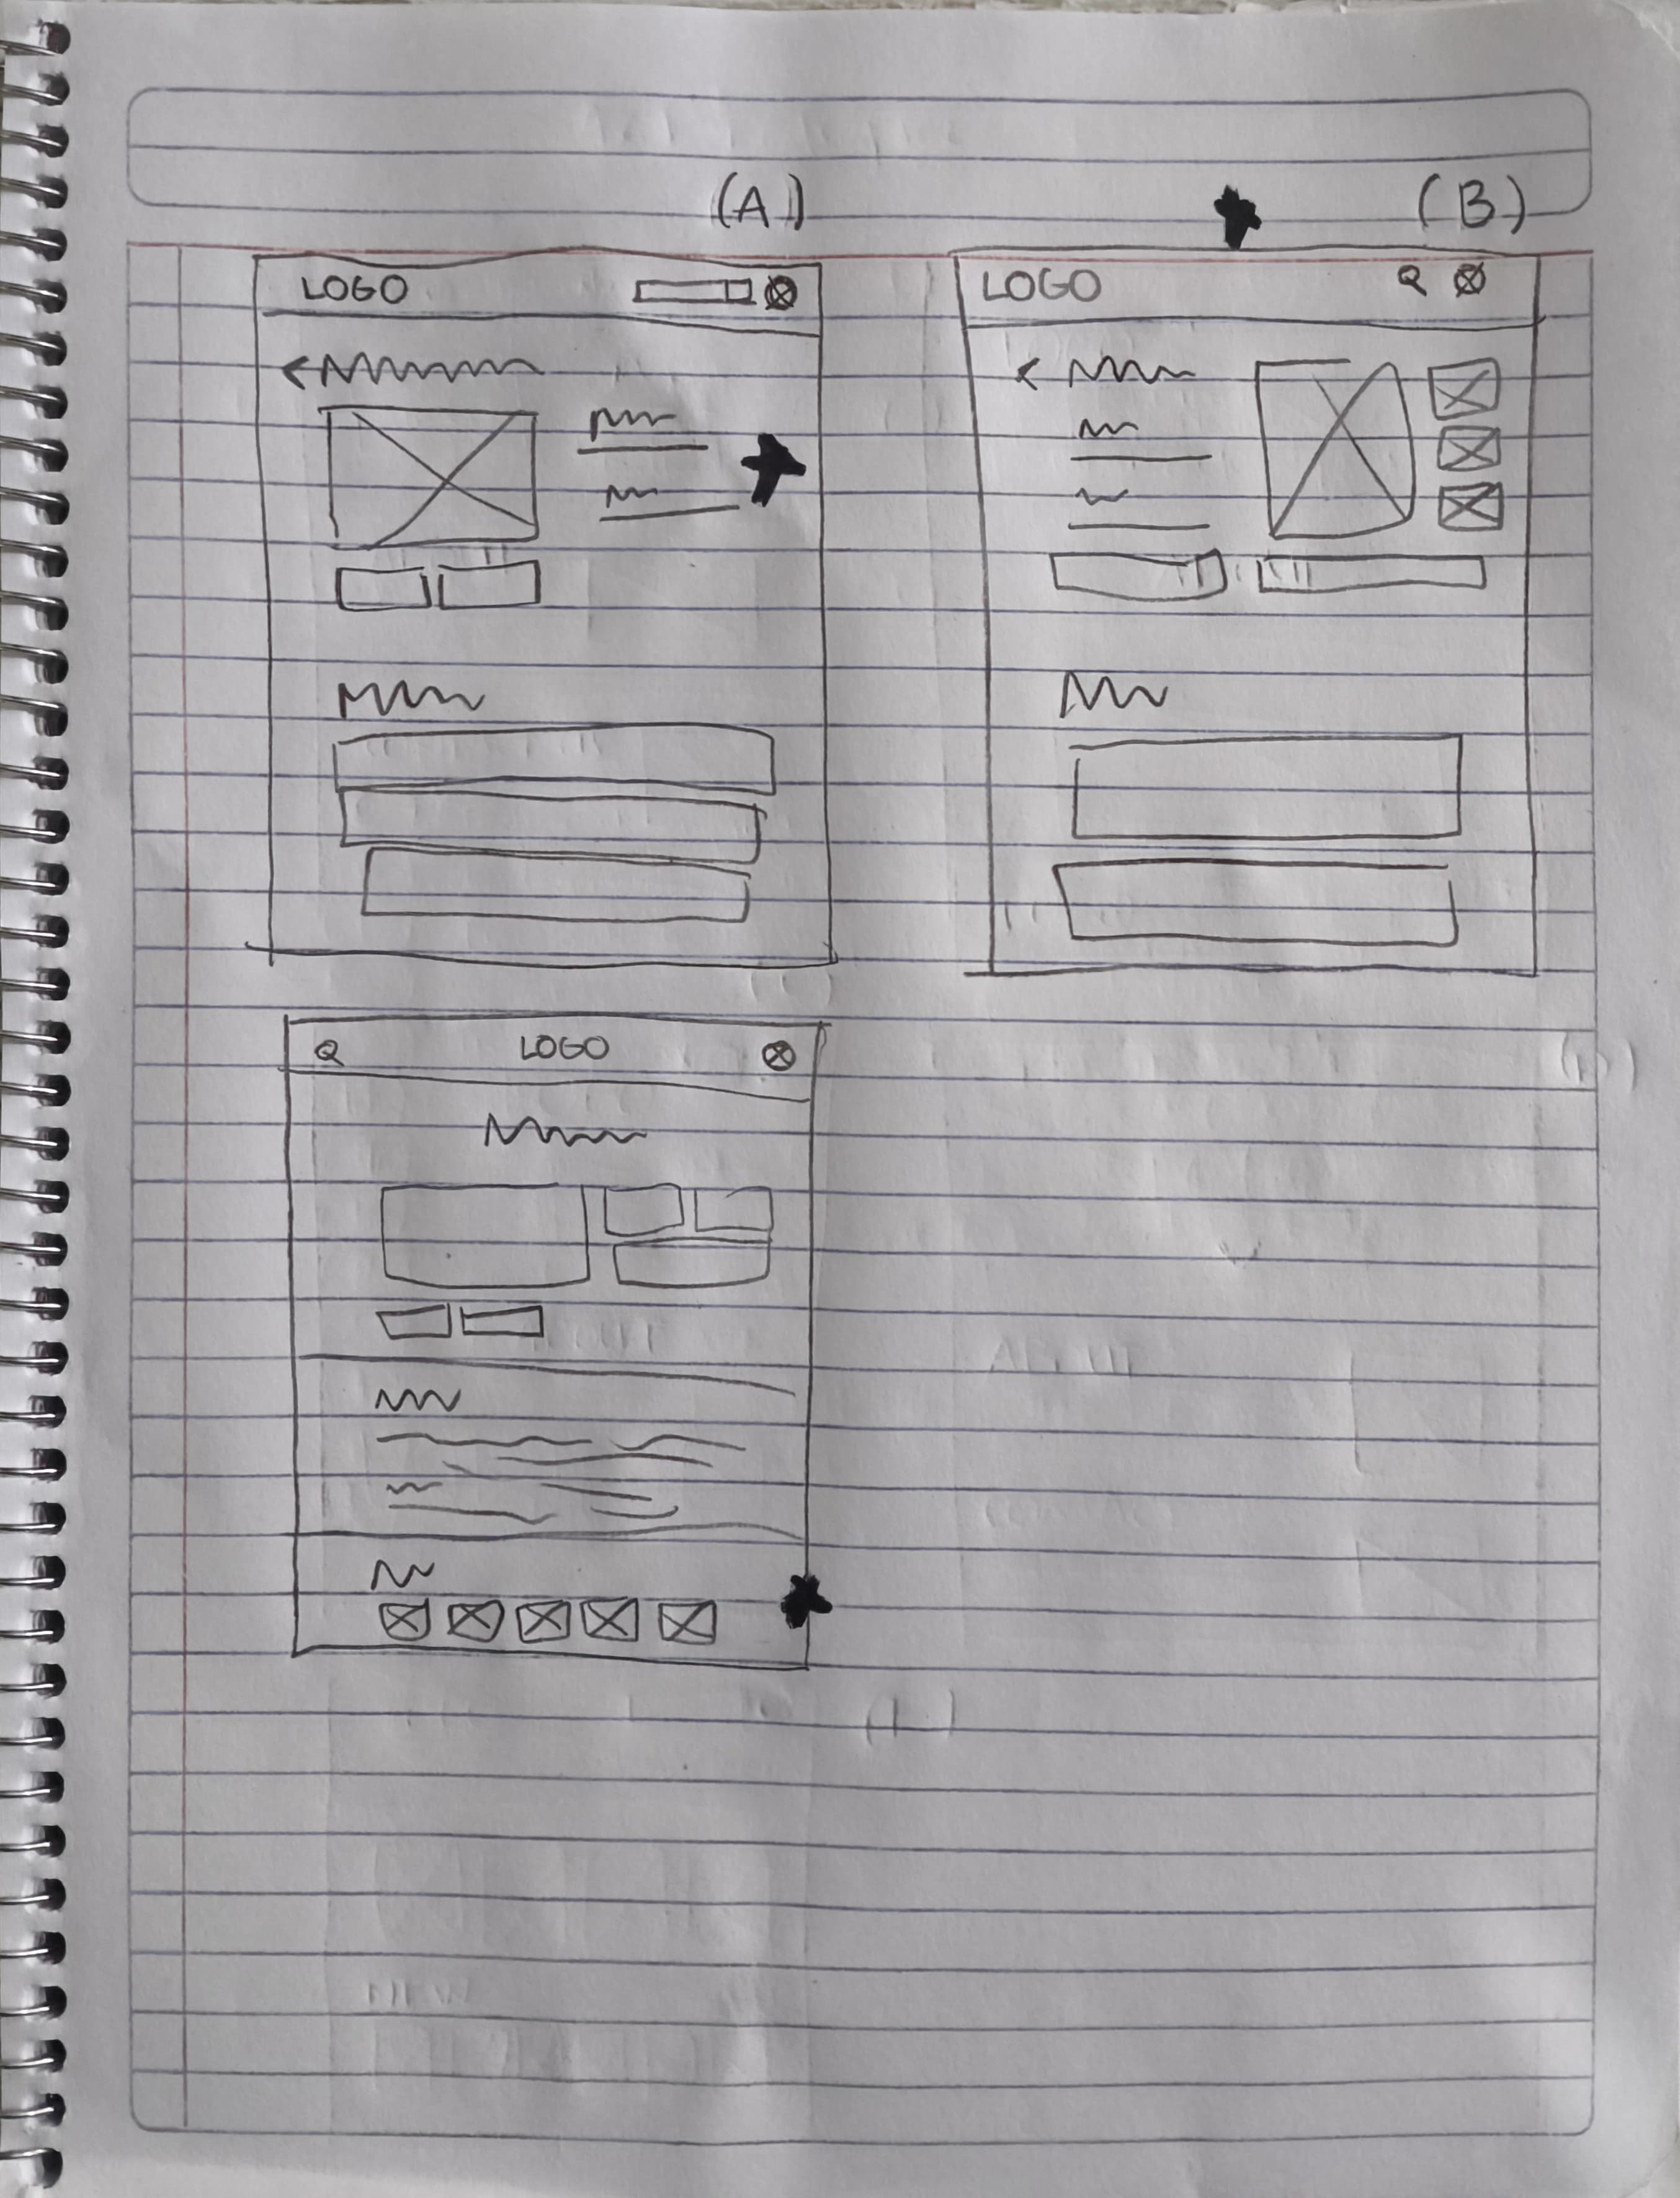 (A)
(B)
LOGO
LOGO
LOGO